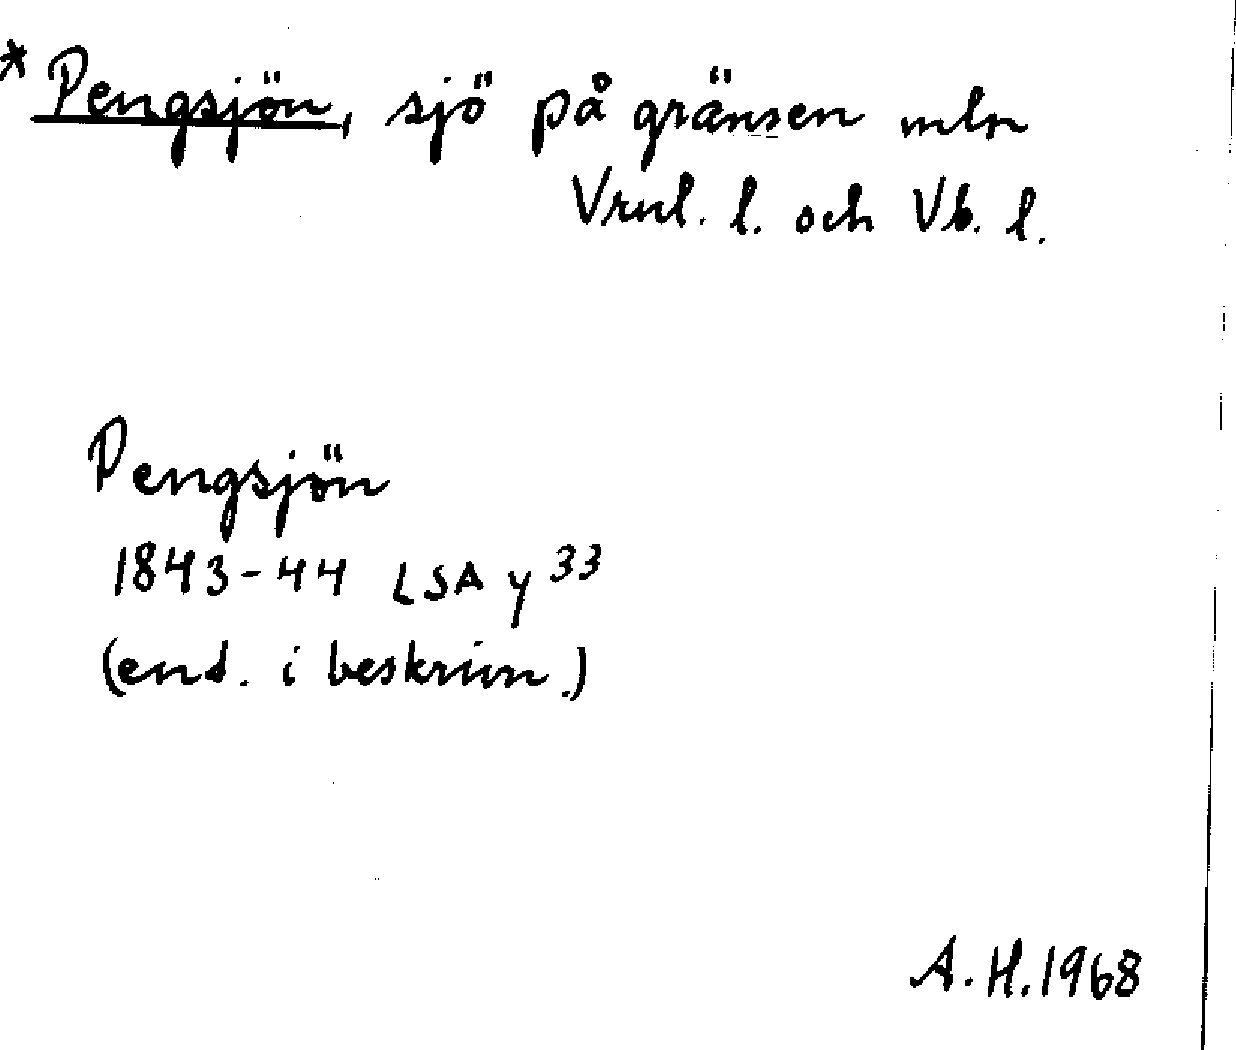 * Pengsjön, sjö på gränsen mln
Vrnl. l. och Vb. l.
Pengsjön
1843-44 LSA y 33
(end. i beskrivn.)
A. H. 1968